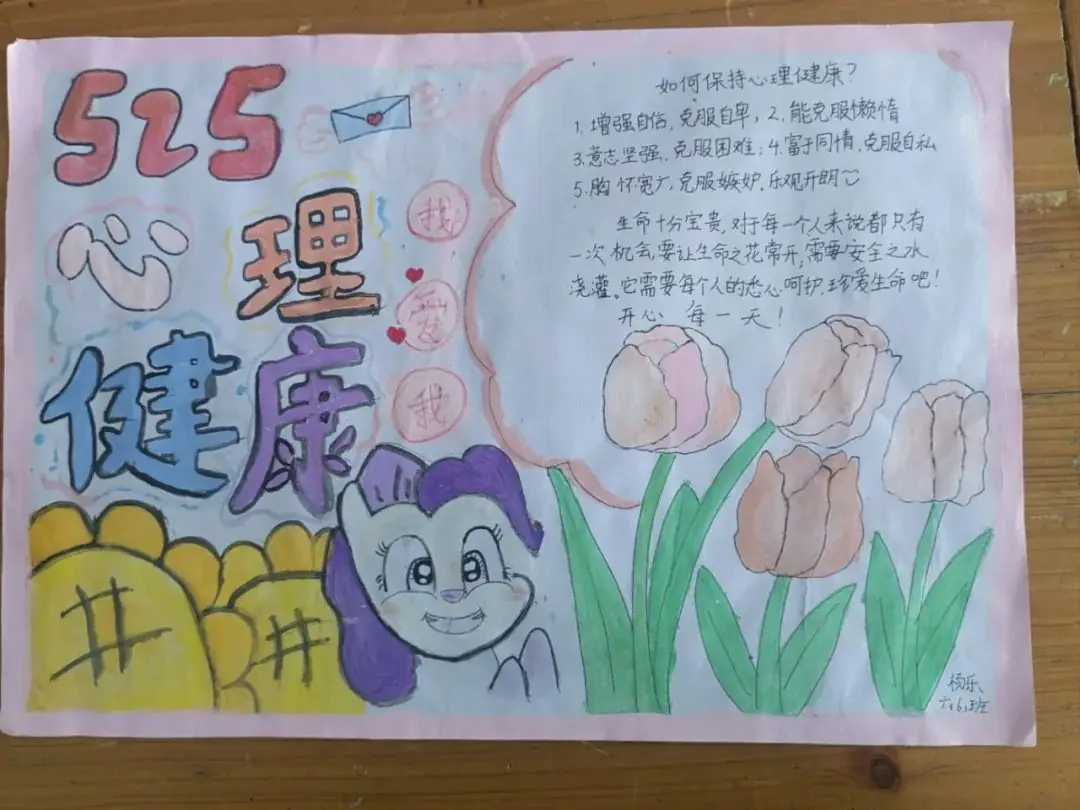 525
心理
健康
我
爱
我
如何保持心理健康?
1.增强自信,克服自卑,2.能克服懒惰
3.意志坚强,克服困难;4.富于同情,克服自私
5.胸怀宽广,克服嫉妒.乐观开朗
生命十分宝贵,对于每一个人来说都只有
一次机会,要让生命之花常开,需要安全之水
浇灌。它需要每个人的悉心呵护.珍爱生命吧!
开心每一天!
井
井
杨乐
六(6)班